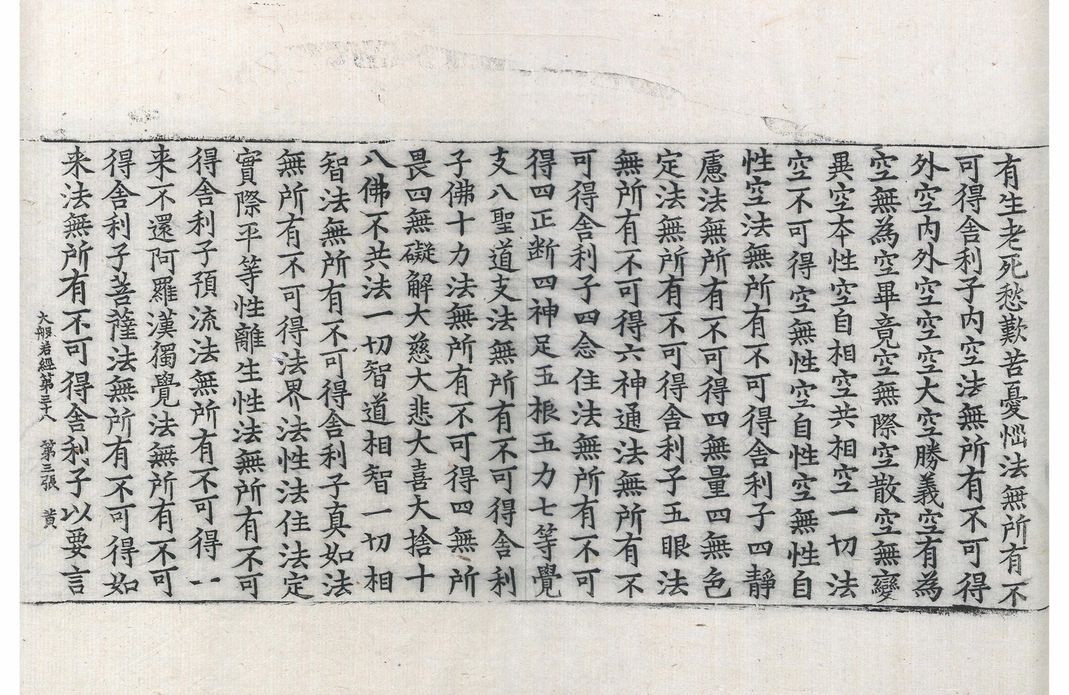 有生老死愁歎苦憂惱法無所有不
可得舍利子內空法無所有不可得
外空內外空空空大空勝義空有為
空無為空畢竟空無際空散空無變
異空本性空自相空共相空一切法
空不可得空無性空自性空無性自
性空法無所有不可得舍利子四靜
慮法無所有不可得四無量四無色
定法無所有不可得舍利子五眼法
無所有不可得六神通法無所有不
可得舍利子四念住法無所有不可
得四正断四神足五根五力七等覺
支八聖道支法無所有不可得舍利
子佛十力法無所有不可得四無所
畏四無礙解大慈大悲大喜大捨十
八佛不共法一切智道相智一切相
智法無所有不可得舍利子真如法
無所有不可得法界法性法住法定
實際平等性離生性法無所有不可
得舍利子預流法無所有不可得一
来不還阿羅漢獨覺法無所有不可
得舍利子菩薩法無所有不可得如
来法無所有不可得舍利子以要言
大般若經第三十八 第三張 黄